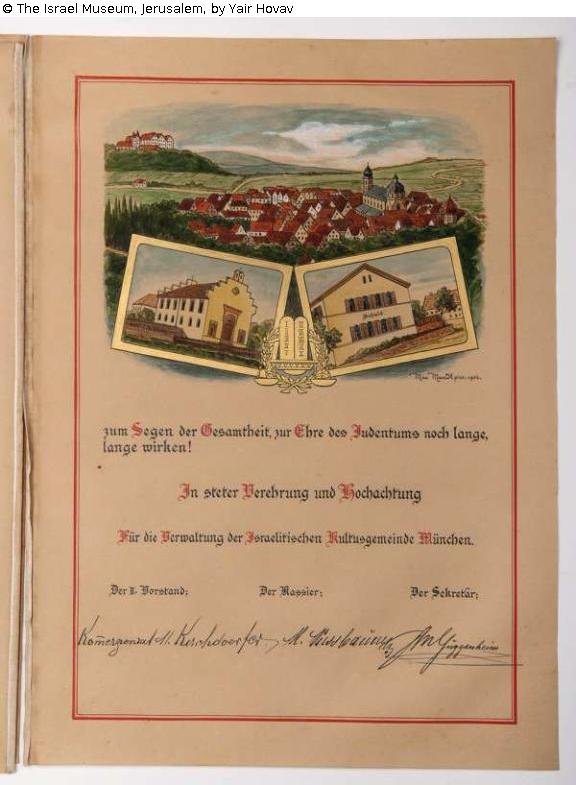 © The Israel Museum, Jerusalem, by Yair Hovav
zum Segen der Gesamtheit, zur Ehre des Judentums noch lange,
lange wirken!
In steter Verehrung und Hochachtung
Für die Verwaltung der Israelitischen Kultusgemeinde München.
Der I. Vorstand: Der Kassier: Der Sekretär:
Kommerzienrat Guggenheim